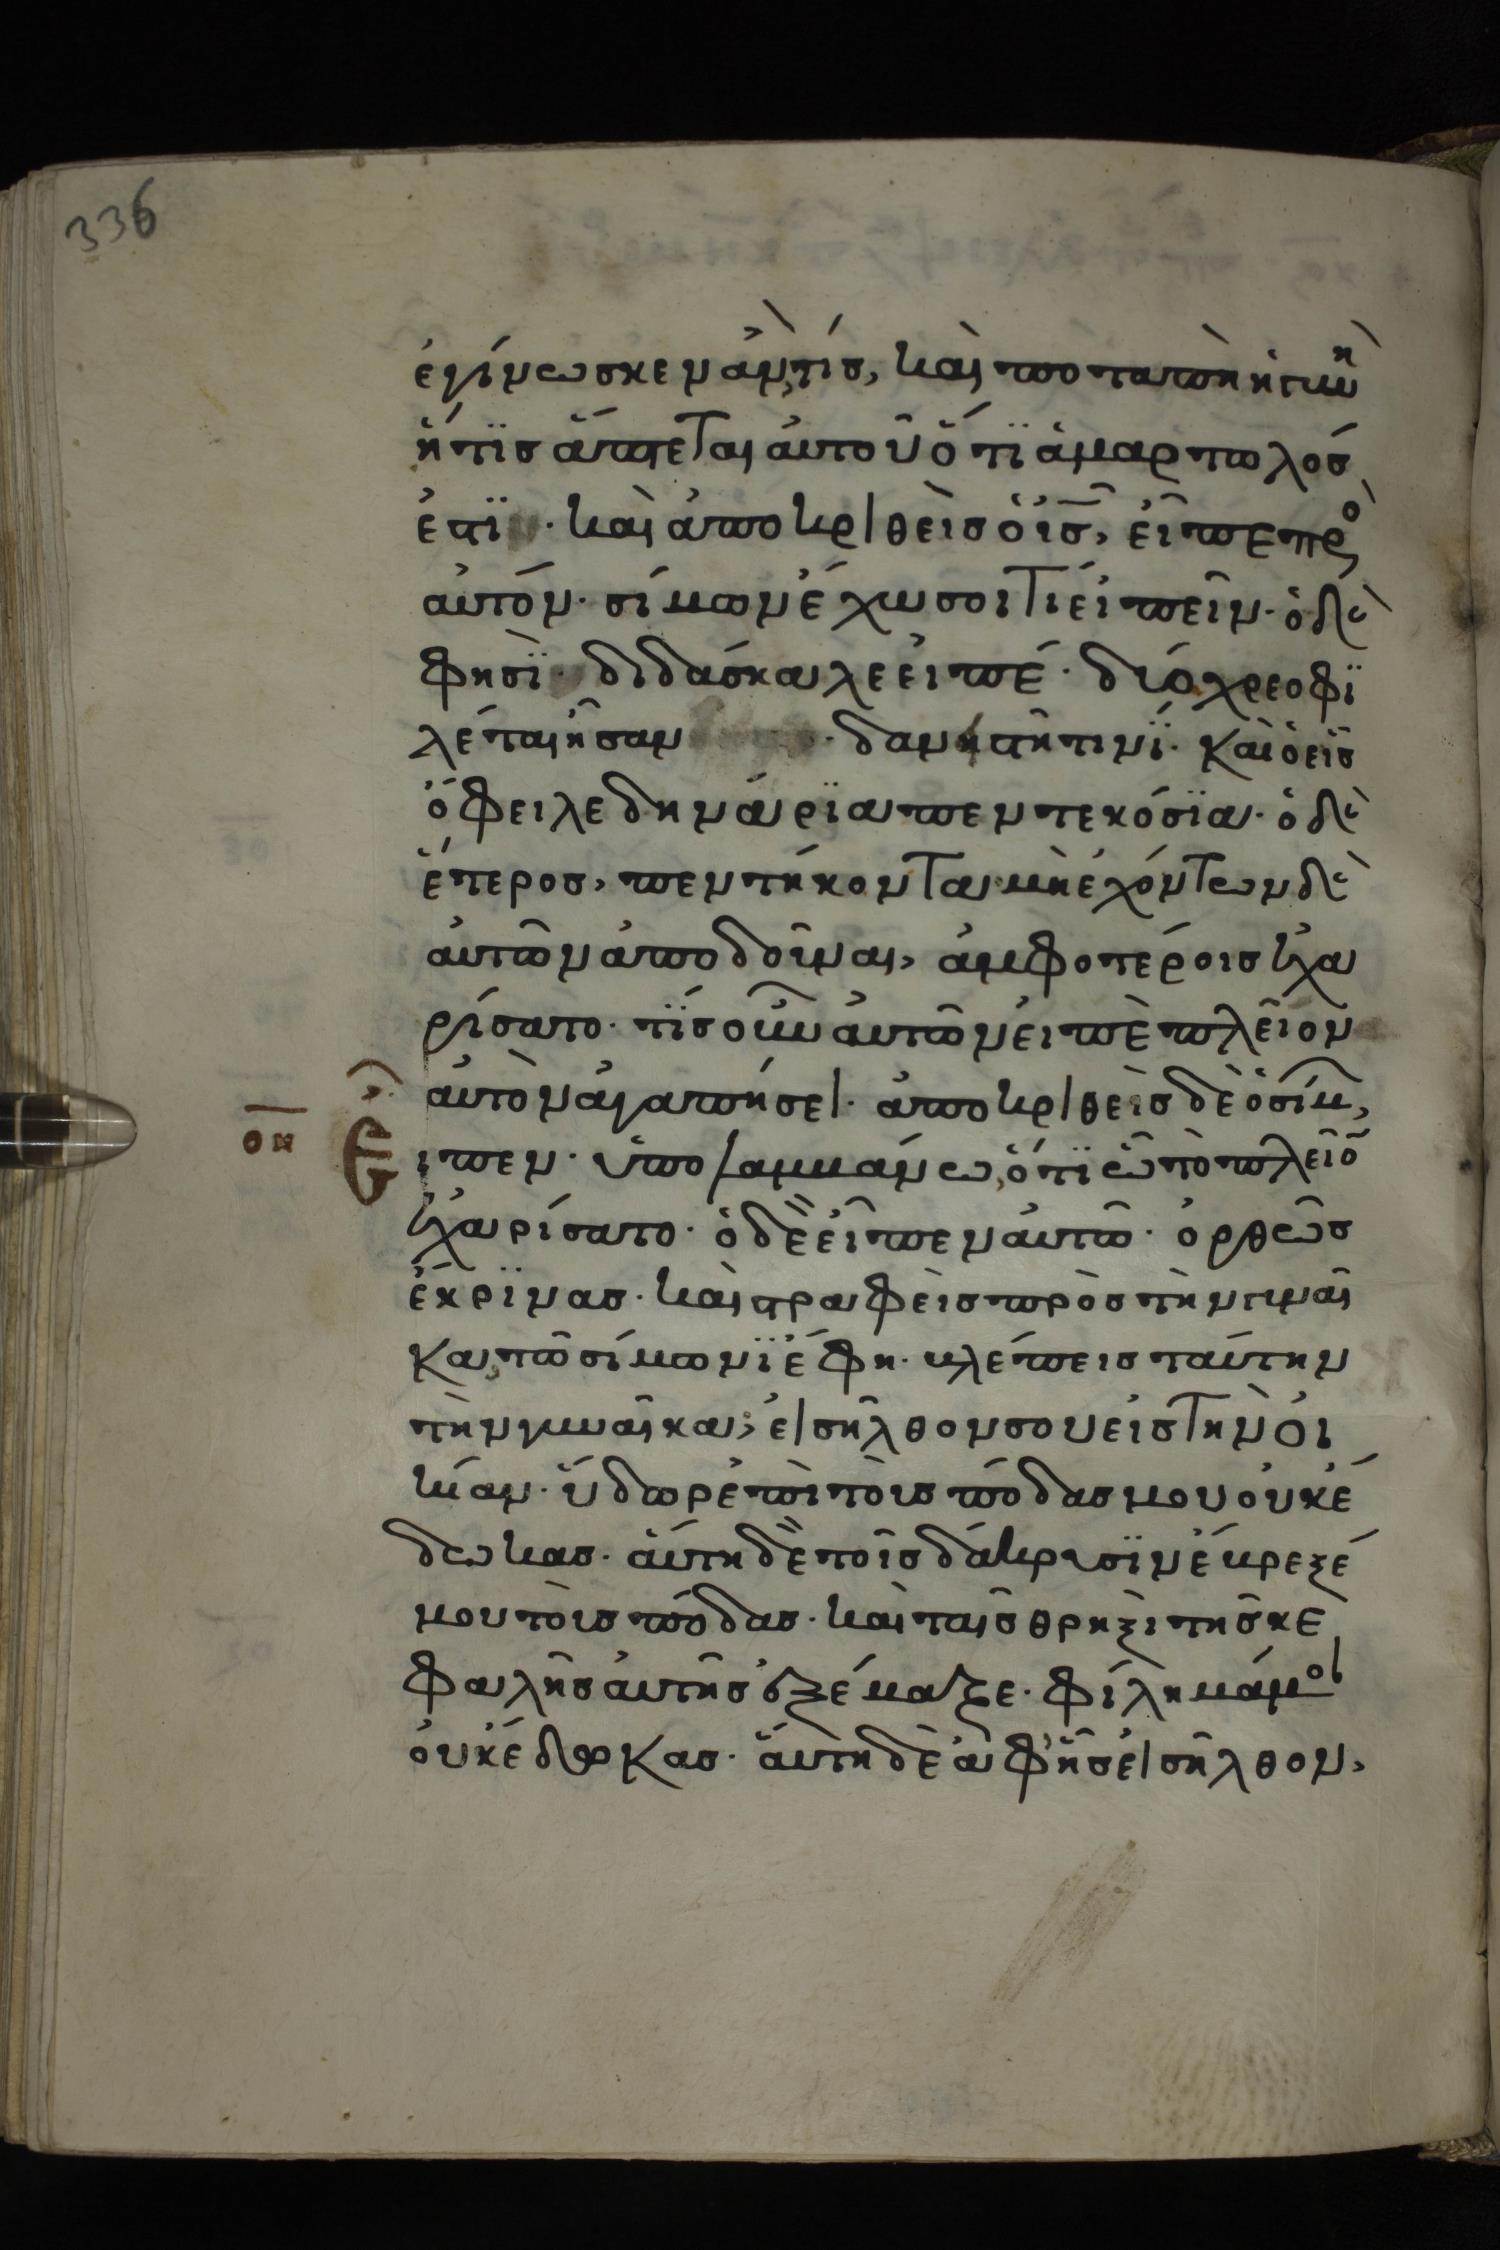 336
ἐγίνωσκεν ἂν, τίς, καὶ ποταπὴ ἡ γυνὴ
ἥτϊς ἅπτεται αὐτοῦ ὅτϊ ἁμαρτωλός
ἐστϊ · καὶ ἀποκριθεὶς ὁ ἰ̅ς̅, εἶπε πρὸς
αὐτόν · σίμων ἔχω σοι τι εἰπεῖν · ὁ δὲ
φησὶ · διδάσκαλε εἰπέ · δύο χρεοφϊ
λέται ἦσαν · δανηστῆ τινί · καὶ ὁ εἷς
ὄφειλε δηνάρϊα πεντεκόσϊα · ὁ δὲ
ἕτερος, πεντήκοντα μὴ ἐχόντων δὲ
αὐτῶν ἀποδοῦναι, ἀμφοτέροις ἐχα
ρίσατο · τίς οὖν αὐτῶν εἰπὲ πλεῖον
αὐτὸν ἀγαπήσει · ἀποκριθεὶς δὲ ὁ σίμων,
ον Εἶ
ιπεν · ὑπολαμμάνω, ὅτϊ ὧ τὸ πλεῖον
ἐχαρίσατο · ὁ δὲ εἶπεν αὐτῶ · ὀρθῶς
ἔκρϊνας · καὶ στραφεὶς πρὸς τὴν γυναῖ
κα, τῶ σίμωνϊ ἔφη · βλέπεις ταύτην
τὴν γυναῖκα; εἰσῆλθον σου εἰς τὴν οἰ
κίαν · ὕδωρ ἐπὶ τοὺς πόδας μου οὐκ ἔ
δωκας · αὕτη δὲ τοῖς δάκρυσϊν ἔβρεξέ
μου τοὺς πόδας · καὶ ταῖς θρηξὶ τῆς κε
φαλῆς αὐτῆς ἐξέμαξε · φίλημά μοι
οὐκ ἔδωκας · αὕτη δὲ ἀφῆς εἰσῆλθον,